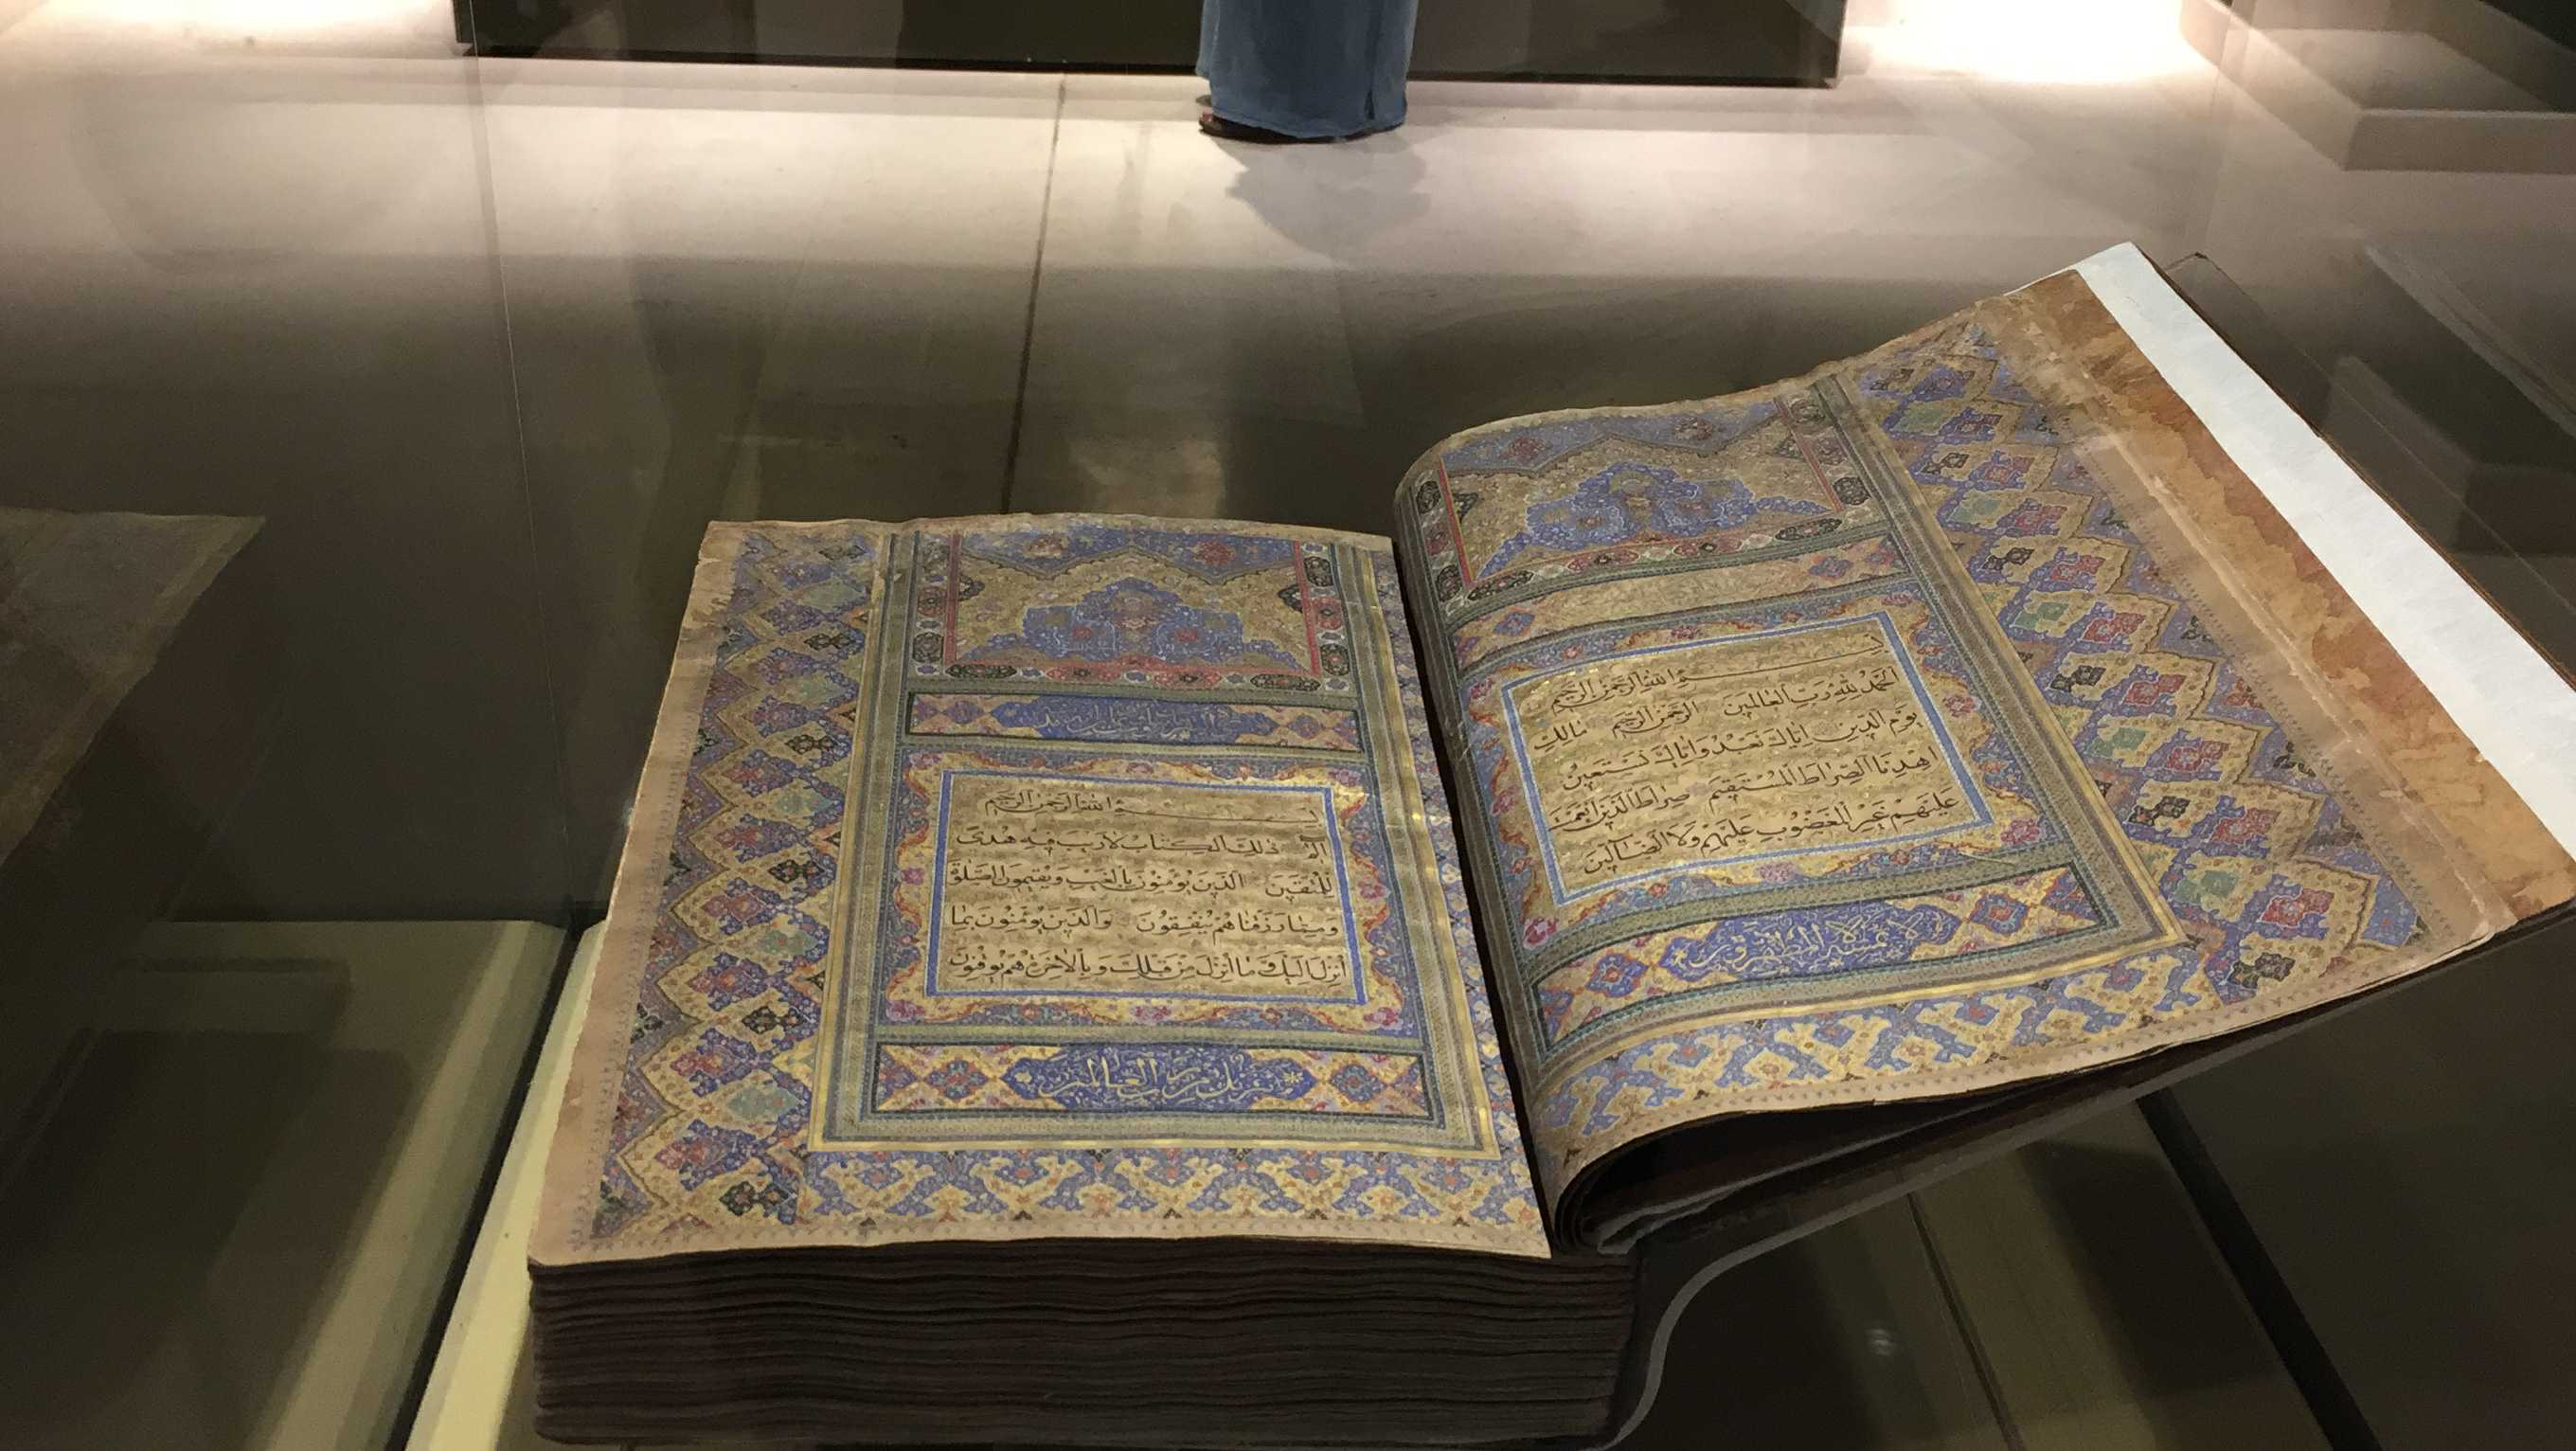 بسم الله الرحمن الرحيم
الحمد لله رب العالمين الرحمن الرحيم مالك
يوم الدين اياك نعبد واياك نستعين
اهدنا الصراط المستقيم صراط الذين انعمت
عليهم غير المغضوب عليهم ولا الضالين
لا يمسه الا المطهرون
بسم الله الرحمن الرحيم
الم ذلك الكتاب لا ريب فيه هدى
للمتقين الذين يؤمنون بالغيب ويقيمون الصلوة
ومما رزقناهم ينفقون والذين يؤمنون بما
أنزل اليك وما أنزل من قبلك وبالاخرة هم يوقنون
تنزيل من رب العالمين